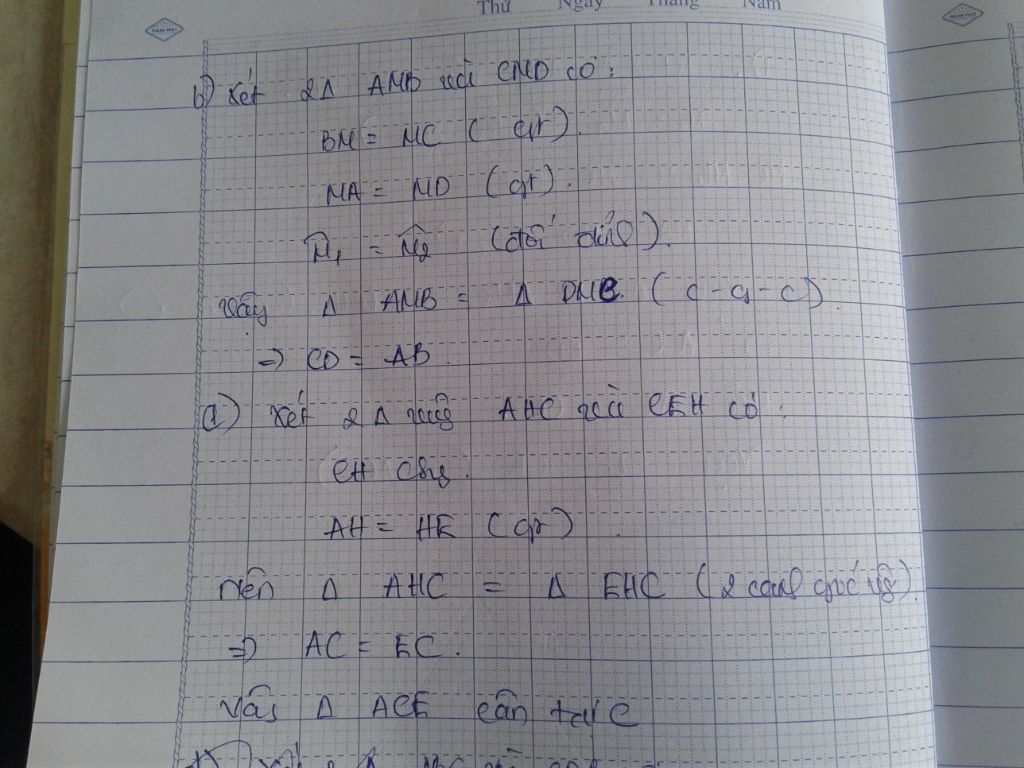 Thứ Ngày Tháng Năm
b) Xét 2Δ AMB với CMD có:
BM = MC (gt).
MA = MD (gt).
M̂₁ = M̂₂ (đối đỉnh).
Vậy Δ AMB = Δ DMC. (c-g-c)
=> CD = AB.
a) Xét 2 Δ vuông AHC và CEH có:
CH chung.
AH = HE (gt)
Nên Δ AHC = Δ EHC (2 cạnh góc vg).
=> AC = EC.
Vậy Δ ACE cân tại C